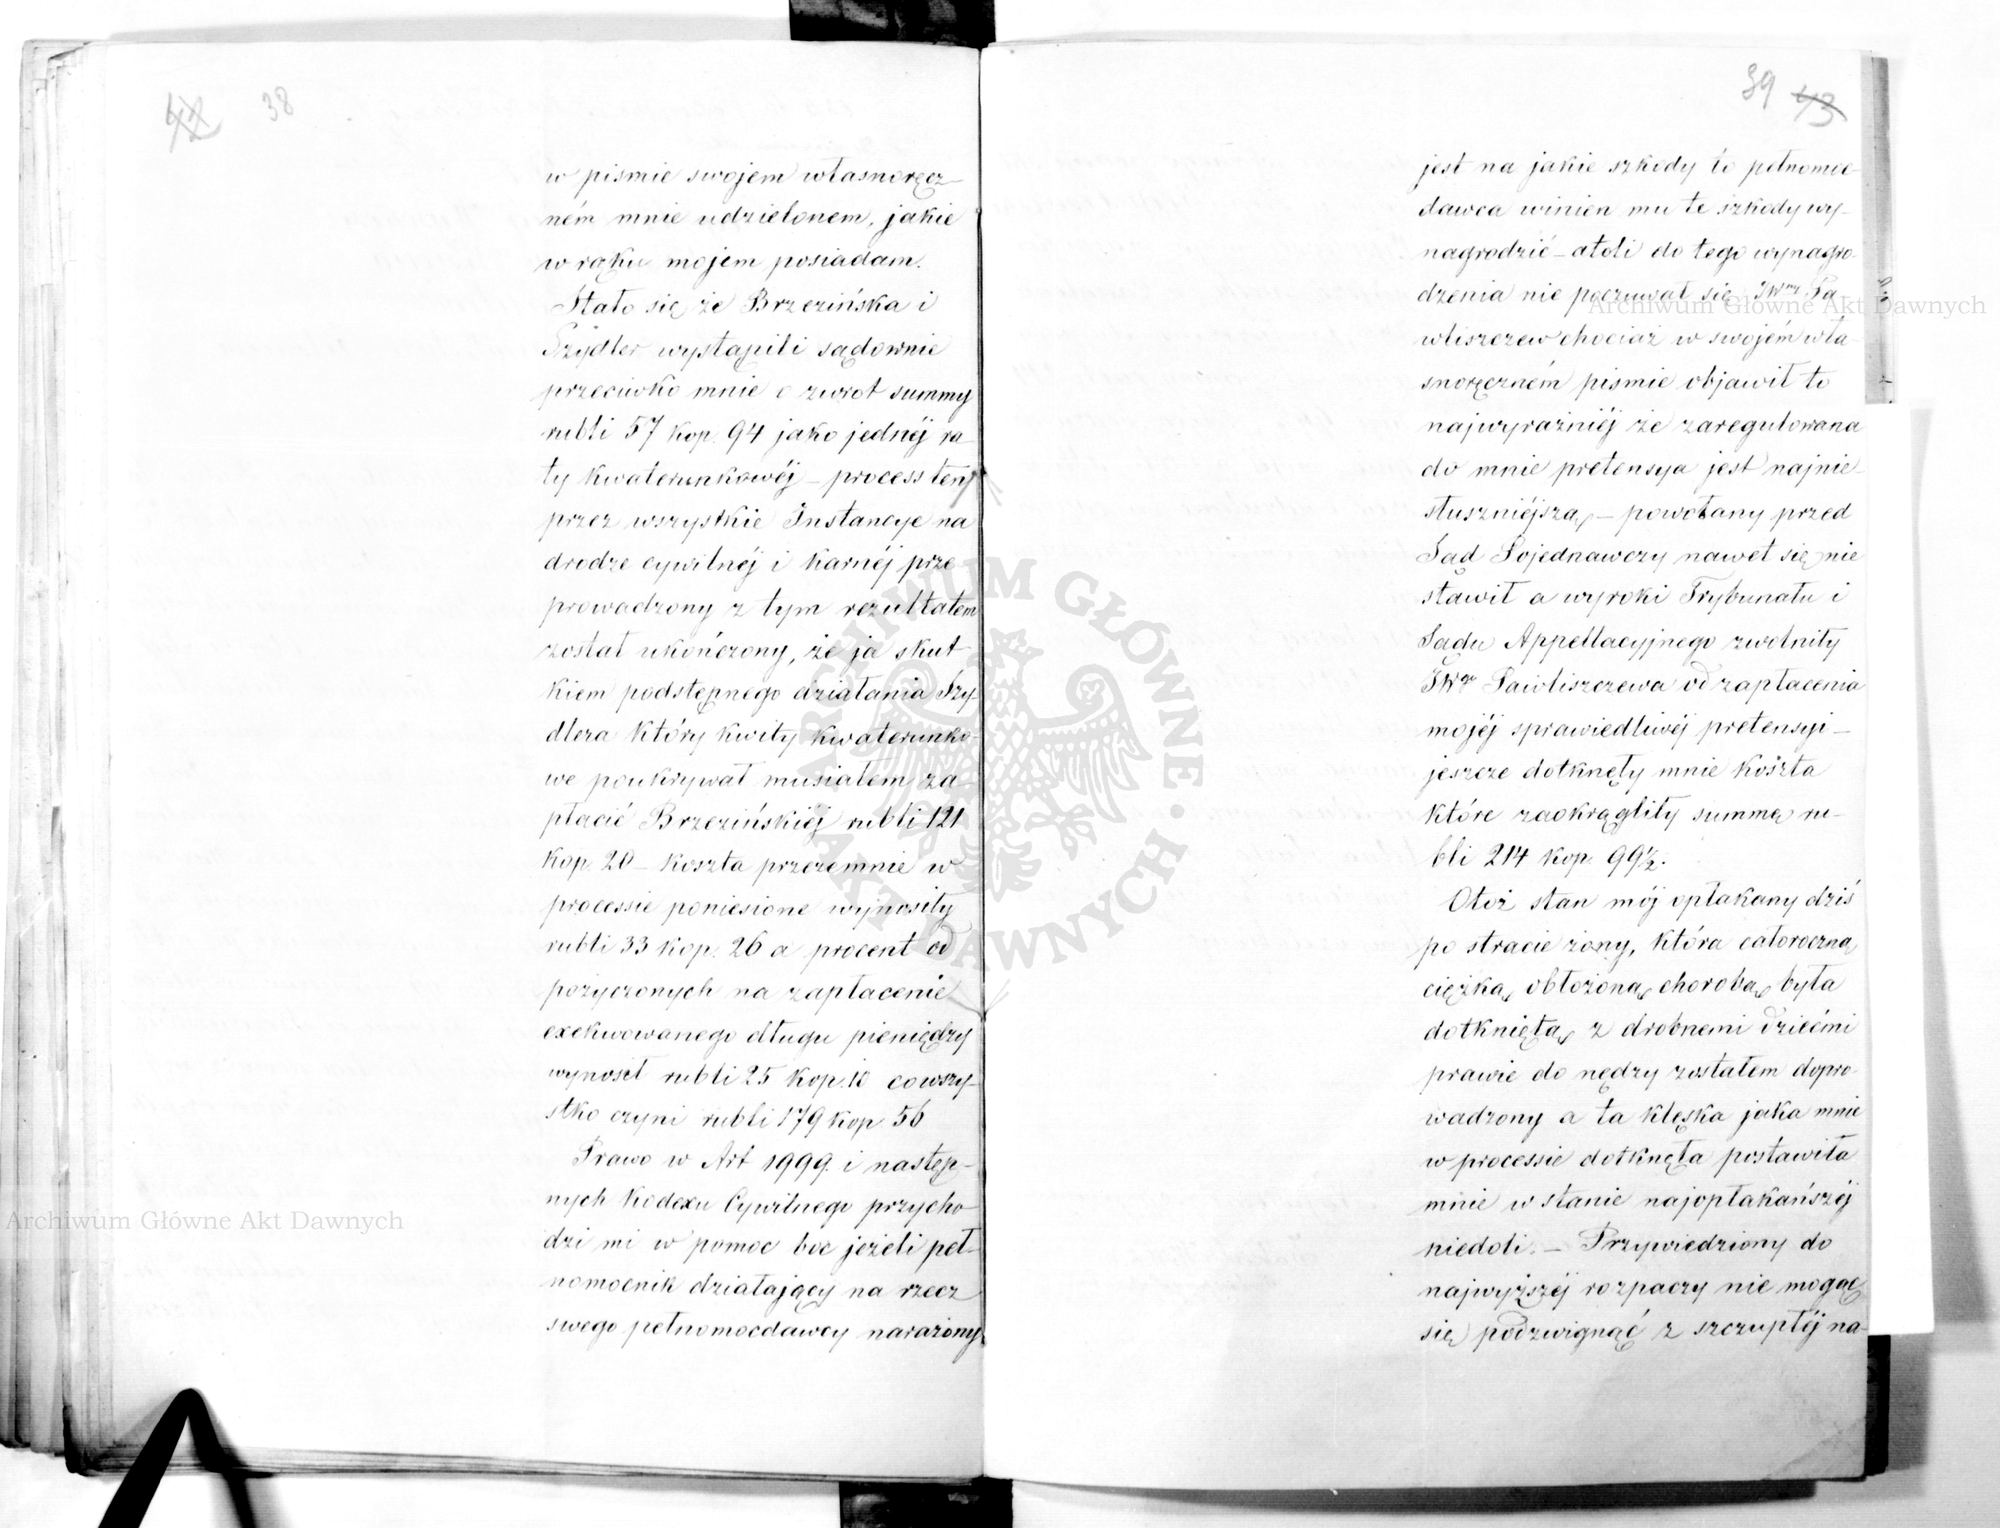 42 38
w pismie swojem własnoręcz-
ném mnie udzielonem, jakie
w ręku mojem posiadam.
Stało się że Brzezińska i
Szydler wystąpili sądownie
przeciwko mnie o zwrot summy
rubli 57 kop. 94 jako jednéj ra-
ty kwaterunkowéj – process ten
przez wszystkie Instancye na
drodze cywilnéj i karnéj prze-
prowadzony z tym rezultatem
został ukończony, że ja skut-
kiem podstępnego działania Szy-
dlera który kwity kwaterunko-
we poukrywał musiałem za-
płacić Brzezińskiéj rubli 121
kop. 20 – koszta przezemnie w
processie poniesione wynosiły
rubli 33 kop. 26 a procent od
pożyczonych na zapłacenie
exekwowanego długu pieniędzy
wynosił rubli 25 kop. 10 co wszy-
stko czyni rubli 179 kop. 56
Prawo w Art 1999. i następ-
nych Kodexu Cywilnego przycho-
dzi mi w pomoc boć jeżeli peł-
nomocnik działający na rzecz
swego pełnomocdawcy narażony
39 43
jest na jakie szkody to pełnomoc-
dawca winien mu te szkody wy-
nagrodzić – atoli do tego wynagro-
dzenia nie poczuwał się JWny Pa-
wliszczew chociaż w swojém wła-
snoręczném pismie objawił to
najwyraźniéj że zaregulowana
do mnie pretensya jest najnie-
słuszniéjszą, – powołany przed
Sąd Pojednawczy nawet się nie
stawił a wyroki Trybunału i
Sądu Appellacyjnego zwolniły
JWgo Pawliszczewa od zapłacenia
mojéj sprawiedliwéj pretensyi –
jeszcze dotknęły mnie koszta
które zaokrągliły summę ru-
bli 214 kop. 99½.
Otóż stan mój opłakany dziś
po stracie żony, która całoroczną
ciężką obłożoną chorobą była
dotkniętą z drobnemi dziećmi
prawie do nędzy zostałem dopro-
wadzony a ta klęska jaka mnie
w processie dotknęła postawiła
mnie w stanie najopłakańszéj
niedoli. – Przywiedziony do
najwyższéj rozpaczy nie mogąc
się podzwignąć z szczupłéj na-
Archiwum Główne Akt Dawnych
Archiwum Główne Akt Dawnych
ARCHIWUM GŁÓWNE AKT DAWNYCH